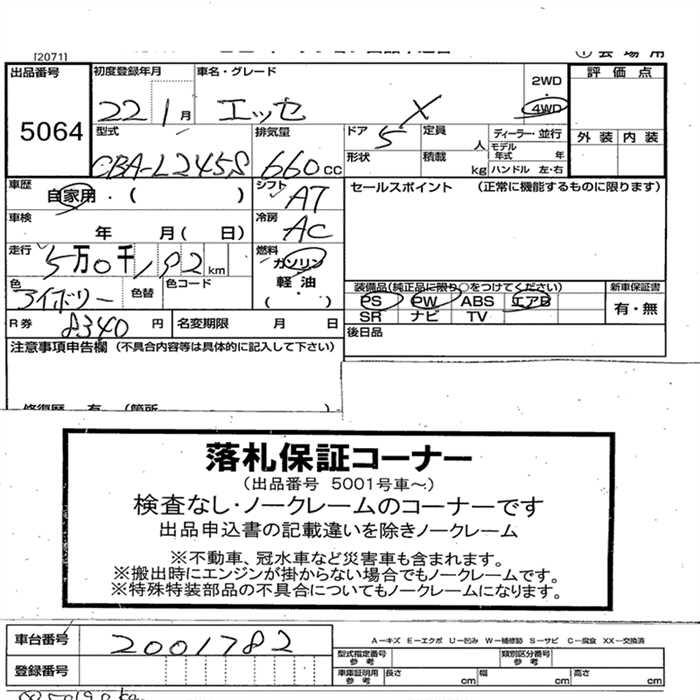 [2071]
出品番号 5064
初度登録年月 22 1月
車名・グレード エッセ X
2WD
4WD
評価点
外装 内装
型式 CBA-L245S
排気量 660cc
ドア 5
定員 人
形状
積載 kg
ディーラー・並行
モデル年式 年
ハンドル 左・右
車歴 自家用・( )
シフト AT
セールスポイント (正常に機能するものに限ります)
車検 年 月( 日)
冷房 AC
走行 5万0千192km
燃料 ガソリン
軽油
( ・ )
色 アイボリー
色替
色コード
装備品(純正品に限り○をつけてください)
新車保証書
PS PW ABS エアB
有・無
SR ナビ TV
R券 8340円
名変期限 月 日
後日品
注意事項申告欄 (不具合内容等は具体的に記入して下さい)
落札保証コーナー
(出品番号 5001号車~)
検査なし・ノークレームのコーナーです
出品申込書の記載違いを除きノークレーム
※不動車、冠水車など災害車も含まれます。
※搬出時にエンジンが掛からない場合でもノークレームです。
※特殊特装部品の不具合についてもノークレームになります。
車台番号 2001782
A-キズ E-エクボ U-凹み W-補修跡 S-サビ C-腐食 XX-交換済
型式指定番号 参考
類別区分番号 参考
登録番号
車庫証明用 参考
長さ cm 幅 cm 高さ cm